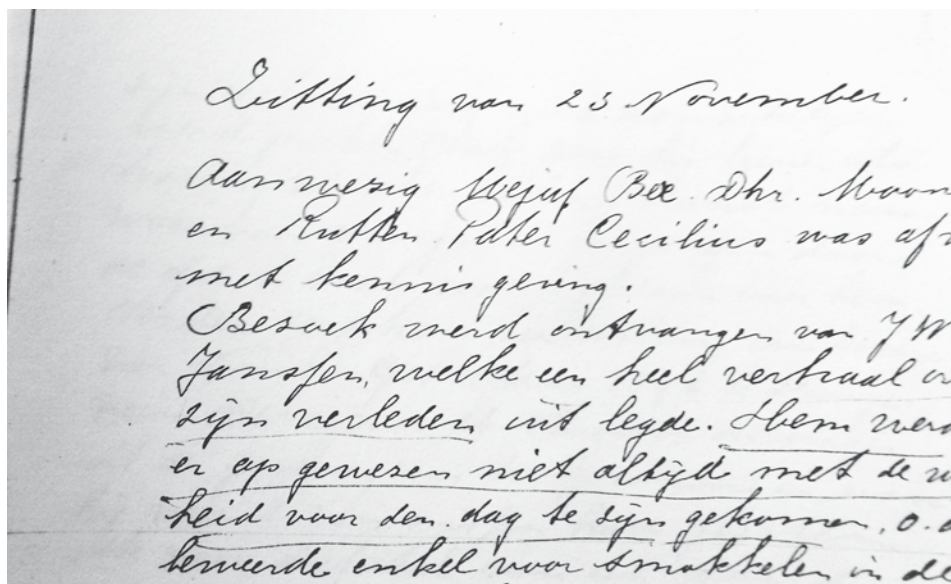 Zitting van 23 November.
Aanwezig Mejuf Bee. Dhr. Moon
en Rutten. Pater Cecilius was af
met kennisgeving.
Bezoek werd ontvangen van J W
Janssen, welke een heel verhaal
zijn verleden uit legde. Hem werd
er op gewezen niet altijd met de w
heid voor den dag te zijn gekomen, o.a
beweerde enkel voor smokkelen in de